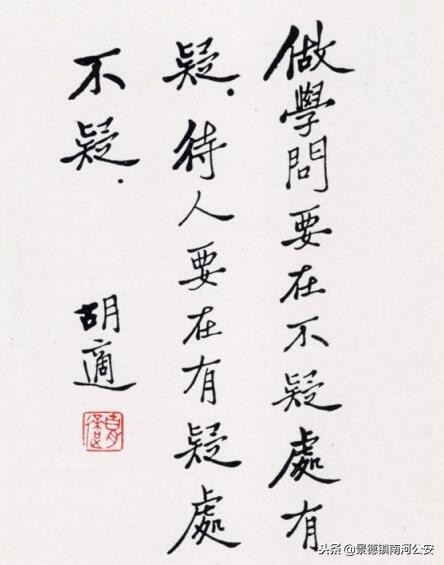 做學問要在不疑處有
疑．待人要在有疑處
不疑．
胡適
头条@景德镇南河公安